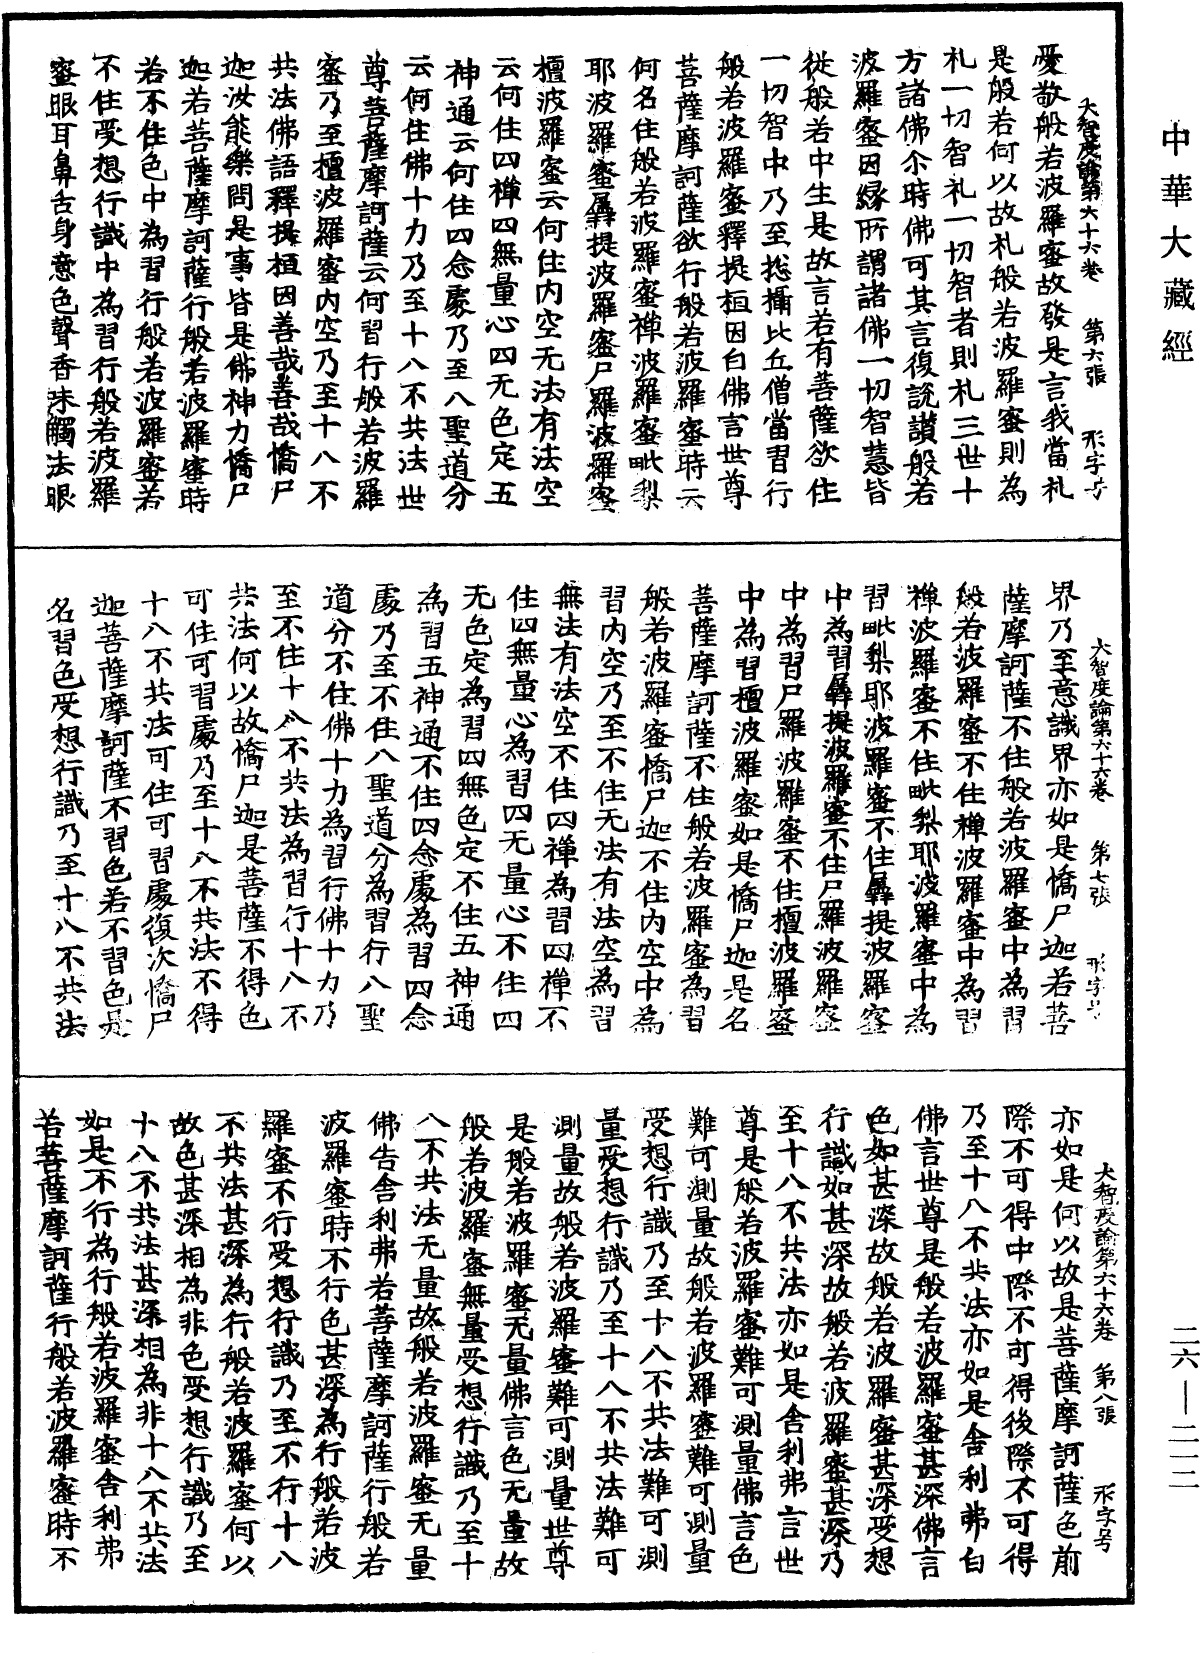 中華大藏經
大智度論第六十六卷　第六張　形字号
愛敬般若波羅蜜故發是言我當礼
是般若何以故礼般若波羅蜜則為
礼一切智礼一切智者則礼三世十
方諸佛尒時佛可其言復説讃般若
波羅蜜因縁所謂諸佛一切智慧皆
從般若中生是故言若有菩薩欲住
一切智中乃至揔攝比丘僧當習行
般若波羅蜜釋提桓因白佛言世尊
菩薩摩訶薩欲行般若波羅蜜時云
何名住般若波羅蜜禅波羅蜜毗梨
耶波羅蜜羼提波羅蜜尸羅波羅蜜
檀波羅蜜云何住内空无法有法空
云何住四禅四無量心四无色定五
神通云何住四念處乃至八聖道分
云何住佛十力乃至十八不共法世
尊菩薩摩訶薩云何習行般若波羅
蜜乃至檀波羅蜜内空乃至十八不
共法佛語釋提桓因善哉善哉憍尸
迦汝能樂問是事皆是佛神力憍尸
迦若菩薩摩訶薩行般若波羅蜜時
若不住色中為習行般若波羅蜜若
不住受想行識中為習行般若波羅
蜜眼耳鼻舌身意色聲香味觸法眼
大智度論第六十六卷　第七張　形字号
界乃至意識界亦如是憍尸迦若菩
薩摩訶薩不住般若波羅蜜中為習
般若波羅蜜不住禅波羅蜜中為習
禅波羅蜜不住毗梨耶波羅蜜中為
習毗梨耶波羅蜜不住羼提波羅蜜
中為習羼提波羅蜜不住尸羅波羅蜜
中為習尸羅波羅蜜不住檀波羅蜜
中為習檀波羅蜜如是憍尸迦是名
菩薩摩訶薩不住般若波羅蜜為習
般若波羅蜜憍尸迦不住内空中為
習内空乃至不住无法有法空為習
無法有法空不住四禅為習四禅不
住四無量心為習四无量心不住四
无色定為習四無色定不住五神通
為習五神通不住四念處為習四念
處乃至不住八聖道分為習行八聖
道分不住佛十力為習行佛十力乃
至不住十八不共法為習行十八不
共法何以故憍尸迦是菩薩不得色
可住可習處乃至十八不共法不得
十八不共法可住可習處復次憍尸
迦菩薩摩訶薩不習色若不習色是
名習色受想行識乃至十八不共法
大智度論第六十六卷　第八張　形字号
亦如是何以故是菩薩摩訶薩色前
際不可得中際不可得後際不可得
乃至十八不共法亦如是舍利弗白
佛言世尊是般若波羅蜜甚深佛言
色如甚深故般若波羅蜜甚深受想
行識如甚深故般若波羅蜜甚深乃
至十八不共法亦如是舍利弗言世
尊是般若波羅蜜難可測量佛言色
難可測量故般若波羅蜜難可測量
受想行識乃至十八不共法難可測
量受想行識乃至十八不共法難可
測量故般若波羅蜜難可測量世尊
是般若波羅蜜无量佛言色无量故
般若波羅蜜無量受想行識乃至十
八不共法无量故般若波羅蜜无量
佛告舍利弗若菩薩摩訶薩行般若
波羅蜜時不行色甚深為行般若波
羅蜜不行受想行識乃至不行十八
不共法甚深為行般若波羅蜜何以
故色甚深相為非色受想行識乃至
十八不共法甚深相為非十八不共法
如是不行為行般若波羅蜜舍利弗
若菩薩摩訶薩行般若波羅蜜時不
二六—二一二